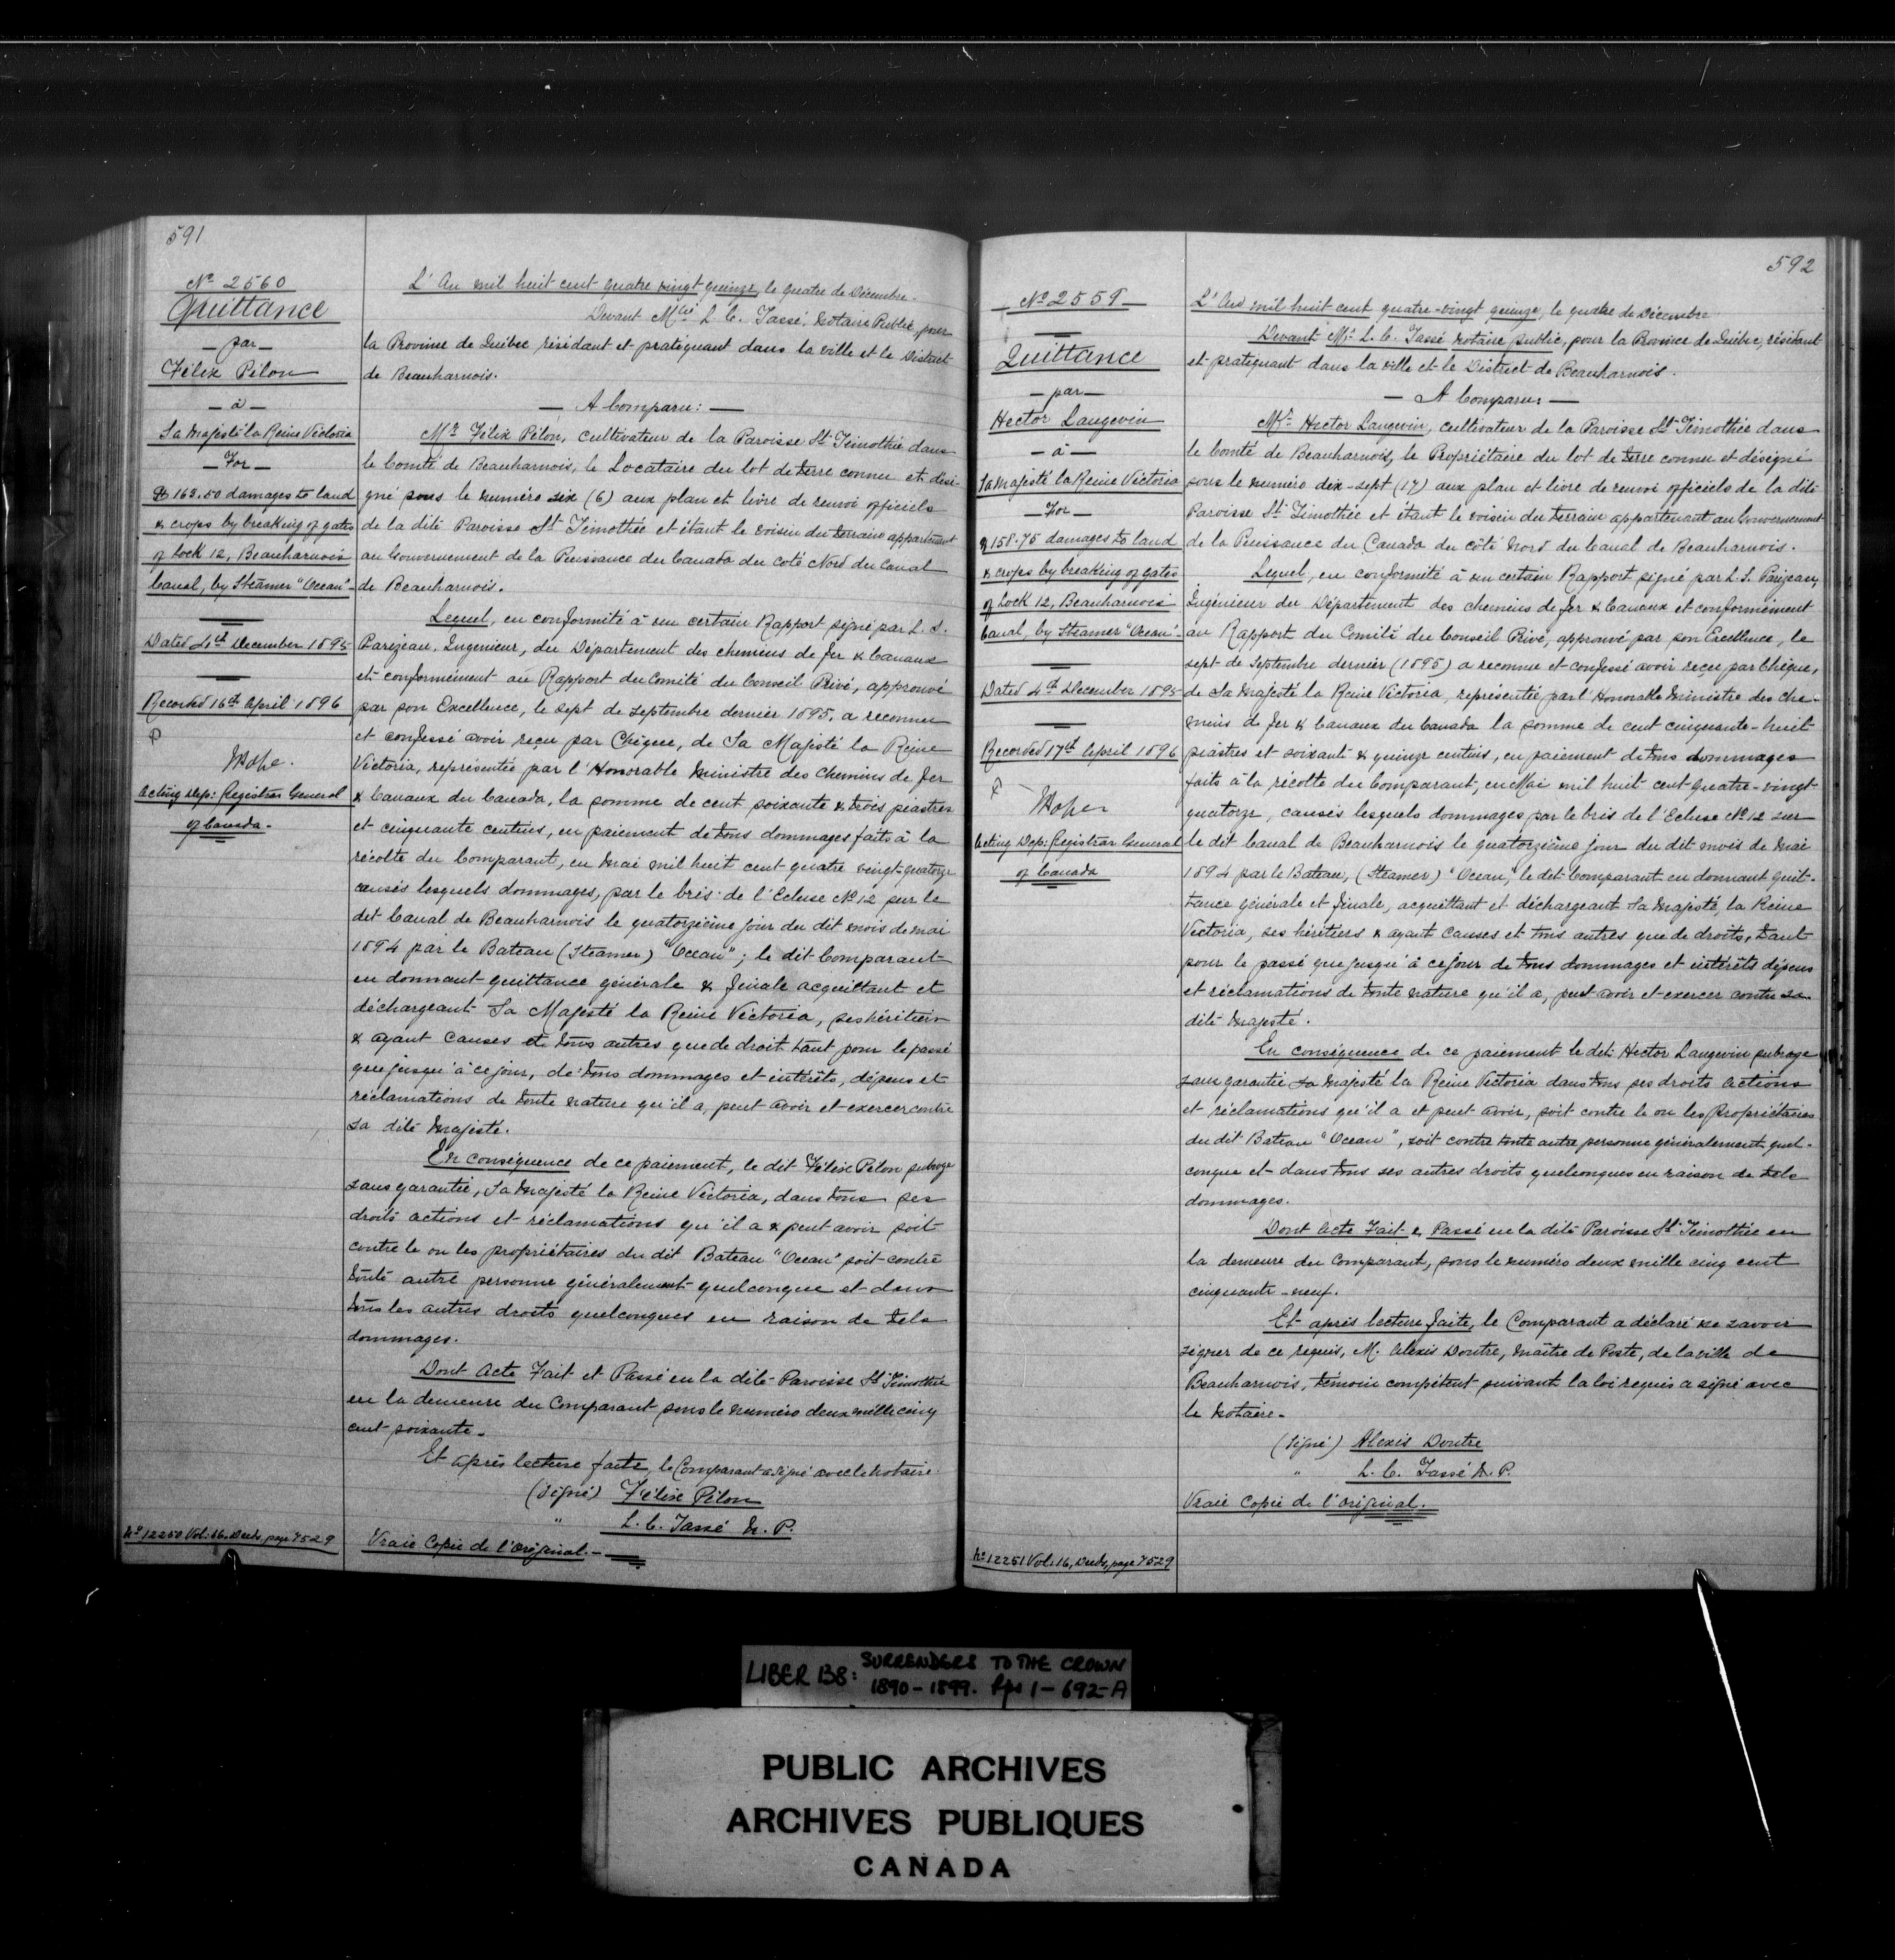 591
No 2560
Quittance
— par —
Félix Pilon
— à —
Sa Majesté la Reine Victoria
— For —
$163.50 damages to land
& crops by breaking of gates
of Lock 12, Beauharnois
Canal, by Steamer "Ocean" -
Dated 4th December 1895
Recorded 16th April 1896
Acting Dep: Registrar General
of Canada -
No 12250 Vol: 16. Deeds, page 7529
L'An mil huit cent quatre vingt-quinze, le quatre de Décembre.
Devant Mtre L. C. Tassé, Notaire Public, pour
la Province de Québec résidant et pratiquant dans la ville et le District
de Beauharnois.
— A Comparu: —
Mr Félix Pilon, cultivateur de la Paroisse St Timothée dans
le Comté de Beauharnois, le Locataire du lot de terre connu et dési-
gné sous le numéro six (6) aux plan et livre de renvoi officiels
de la dite Paroisse St Timothée et étant le voisin du terrain appartenant
au Gouvernement de la Puissance du Canada du coté Nord du Canal
de Beauharnois.
Lequel, en conformité à un certain Rapport signé par L. S.
Parizeau, Ingenieur, du Département des chemins de fer & Canaux
et conformément au Rapport du Comité du Conseil Privé, approuvé
par son Excellence, le sept de septembre dernier 1895, a reconnu
et confessé avoir reçu par Chéque, de Sa Majesté la Reine
Victoria, représentée par l'Honorable Ministre des Chemins de fer
& Canaux du Canada, la somme de cent soixante & trois piastres
et cinquante centins, en paiement de tous dommages faits à la
récolte du Comparant, en Mai mil huit cent quatre vingt-quatorze
causés lesquels dommages, par le bris de l'Ecluse No 12 sur le
dit Canal de Beauharnois le quatorzième jour du dit mois de mai
1894 par le Bateau (Steamer) "Ocean"; le dit Comparant
en donnant quittance générale & finale acquittant et
déchargeant Sa Majesté la Reine Victoria, ses héritiers
& ayant causes et tous autres que de droit tant pour le passé
que jusqu'à ce jour, de tous dommages et intérêts, dépens et
réclamations de toute nature qu'il a, peut avoir et exercer contre
sa dite Majesté.
En conséquence de ce paiement, le dit Félix Pilon subroge
sans garantie, Sa Majesté la Reine Victoria, dans tous ses
droits actions et réclamations qu'il a & peut avoir soit
contre le ou les propriétaires du dit Bateau "Ocean" soit contre
toute autre personne généralement quelconque et dans
tous les autres droits quelconques en raison de tels
dommages.
Dont Acte Fait et Passé en la dite Paroisse St Timothée
en la demeure du Comparant sous le numéro deux mille cinq
cent soixante.
Et après lecture faite, le Comparant a signé avec le Notaire.
(Signé) Félix Pilon
" L. C. Tassé N. P.
Vraie Copie de l'Original. -
592
No 2559
Quittance
— par —
Hector Langevin
— à —
Sa Majesté la Reine Victoria
— For —
$158.75 damages to land
& crops by breaking of gates
of Lock 12, Beauharnois
Canal, by Steamer "Ocean" -
Dated 4th December 1895
Recorded 17th April 1896
Acting Dep: Registrar General
of Canada
No 12251 Vol. 16, Deeds, page 7529
L'An mil huit cent quatre-vingt quinze, le quatre de Décembre
Devant Mr L. C. Tassé Notaire public, pour la Province de Québec, résidant
et pratiquant dans la ville et le District de Beauharnois.
— A Comparu: —
Mr Hector Langevin, cultivateur de la Paroisse St Timothée dans
le Comté de Beauharnois, le Propriétaire du lot de terre connu et désigné
sous le numéro dix-sept (17) aux plan et livre de renvoi officiels de la dite
Paroisse St Timothée et étant le voisin du terrain appartenant au Gouvernement
de la Puissance du Canada du côté Nord du Canal de Beauharnois.
Lequel, en conformité à un certain Rapport signé par L. S. Parizeau,
Ingénieur du Département des chemins de fer & Canaux et conformément
au Rapport du Comité du Conseil Privé, approuvé par son Excellence, le
sept de Septembre dernier (1895) a reconnu et confessé avoir reçu par Chèque,
de Sa Majesté la Reine Victoria, représentée par l'Honorable Ministre des Che-
mins de fer & Canaux du Canada la somme de cent cinquante-huit
piastres et soixante & quinze centins, en paiement de tous dommages
faits à la récolte du Comparant, en Mai mil huit cent quatre-vingt
quatorze, causés lesquels dommages par le bris de l'Ecluse No 12 sur
le dit Canal de Beauharnois le quatorzième jour du dit mois de Mai
1894 par le Bateau, (Steamer) "Ocean," le dit Comparant en donnant quit-
tance générale et finale, acquittant et déchargeant Sa Majesté, la Reine
Victoria, ses héritiers & ayant causes et tous autres que de droits, tant
pour le passé que jusqu'à ce jour de tous dommages et intérêts dépens
et réclamations de toute nature qu'il a, peut avoir et exercer contre sa
dite Majesté.
En conséquence de ce paiement le dit Hector Langevin subroge
sans garantie Sa Majesté la Reine Victoria dans tous ses droits actions
et réclamations qu'il a et peut avoir, soit contre le ou les Propriétaires
du dit Bateau "Ocean", soit contre toute autre personne généralement quel-
conque et dans tous ses autres droits quelconques en raison de tels
dommages.
Dont Acte Fait & Passé en la dite Paroisse St Timothée en
la demeure du Comparant, sous le numéro deux mille cinq cent
cinquante-neuf.
Et après lecture faite, le Comparant a déclaré ne savoir
signer de ce requis, M. Alexis Doutre, Maître de Poste, de la ville de
Beauharnois, témoin compétent suivant la loi requis a signé avec
le Notaire.
(Signé) Alexis Doutre
" L. C. Tassé N. P.
Vraie Copie de l'Original.
LIBER 138: SURRENDERS TO THE CROWN
1890 - 1899. Pgs 1 - 692-A
PUBLIC ARCHIVES
ARCHIVES PUBLIQUES
CANADA